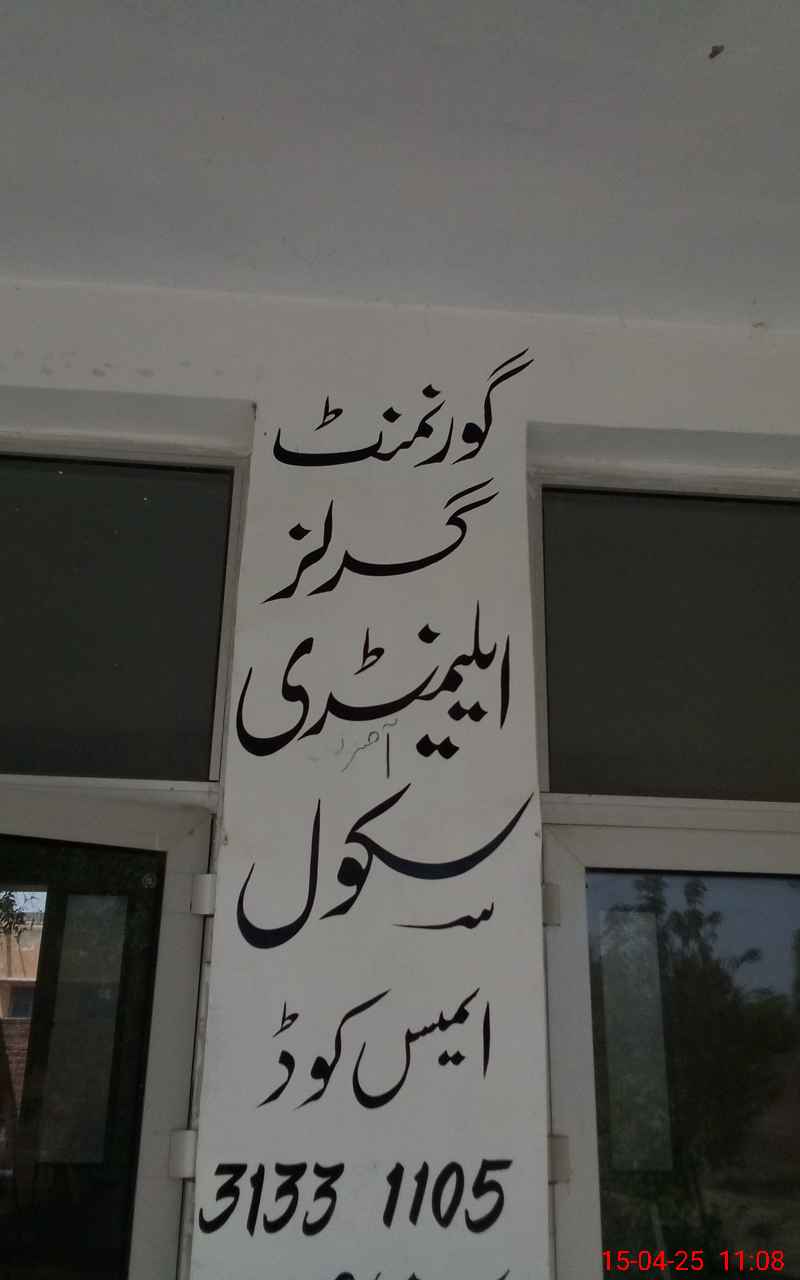 گورنمنٹ
گرلز
ایلیمنٹری
سکول
ایمیس کوڈ
3133 1105
15-04-25 11:08